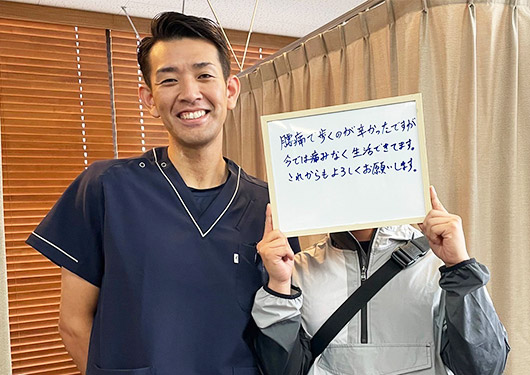 腰痛で歩くのが辛かったですが
今では痛みなく生活できてます。
これからもよろしくお願いします。